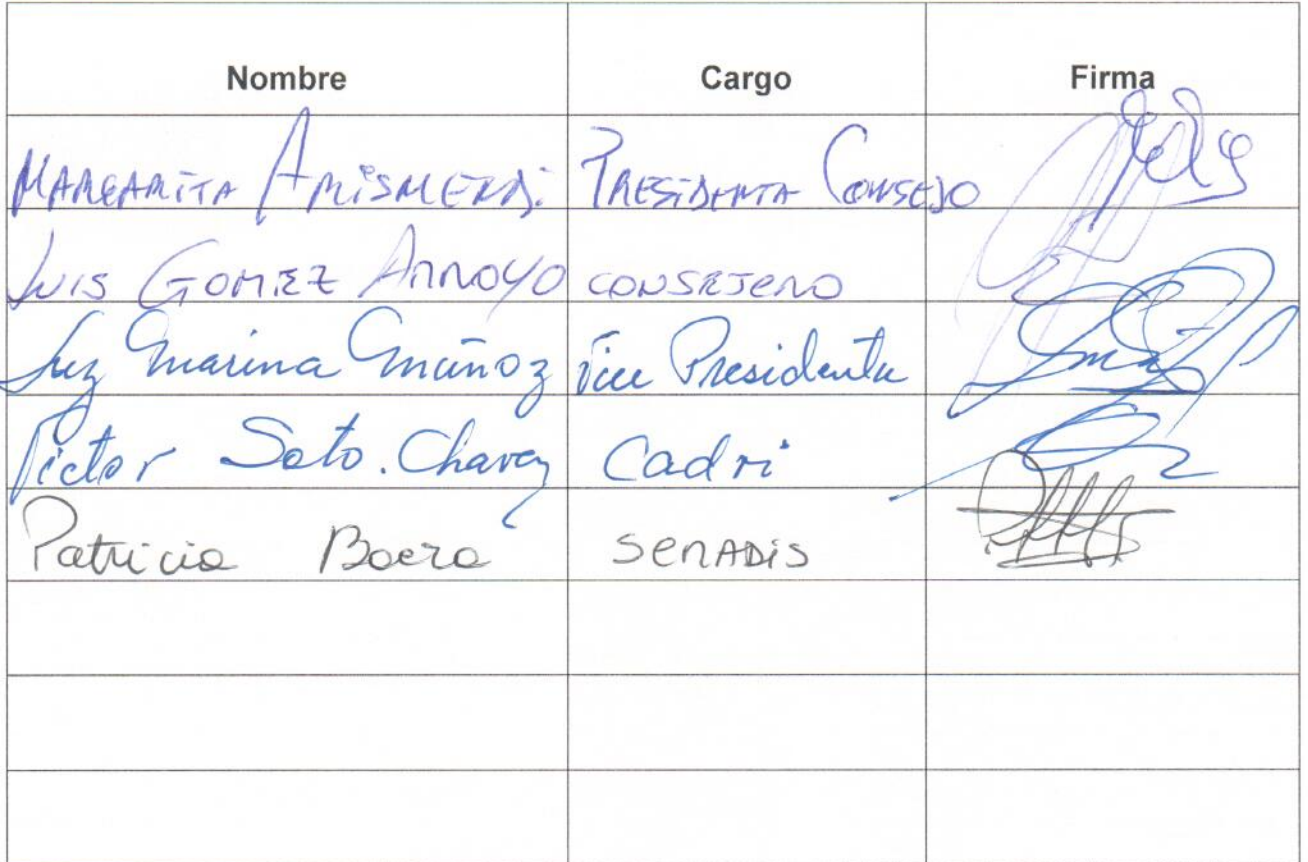 Nombre Cargo Firma
MARGARITA ARISMENDI. PRESIDENTA CONSEJO
LUIS GOMEZ ARROYO CONSEJERO
Luz Marina Muñoz Vice Presidenta
Victor Soto. Chavez Cadri
Patricia Baeza SENADIS